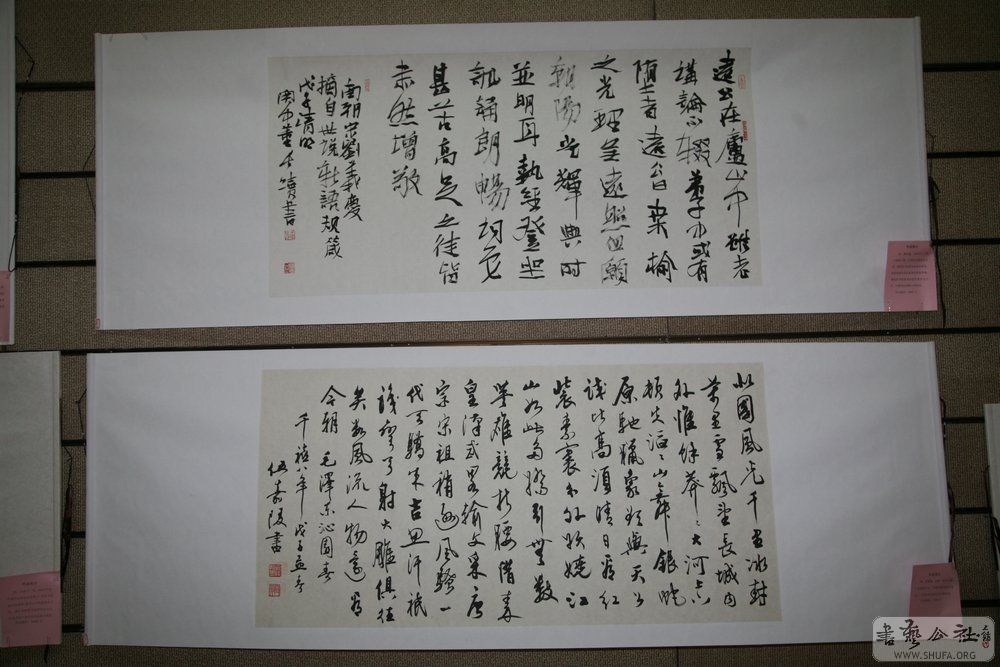 遠公在廬山中雖老
講論不輟弟子中或有
墮者遠公曰桑榆
之光理無遠照但願
朝陽之輝與時
並明耳執經登坐
諷誦朗暢詞色
甚苦高足之徒皆
肅然增敬
南朝宋劉義慶
摘自世說新語規箴
戊子清明
書
北國風光千里冰封
萬里雪飄望長城內
外惟餘莽〻大河上下
頓失滔〻山舞銀蛇
原馳獵象欲與天公
試比高須晴日看紅
裝素裹分外妖嬈江
山如此多嬌引無數
英雄競折腰惜秦
皇漢武略輸文采唐
宗宋祖稍遜風騷一
代天驕成吉思汗祇
識彎弓射大雕俱往
矣數風流人物還看
今朝 毛澤東沁園春
千禧八年戊子孟冬
伍嘉陵書
書藝公社
WWW.SHUFA.ORG